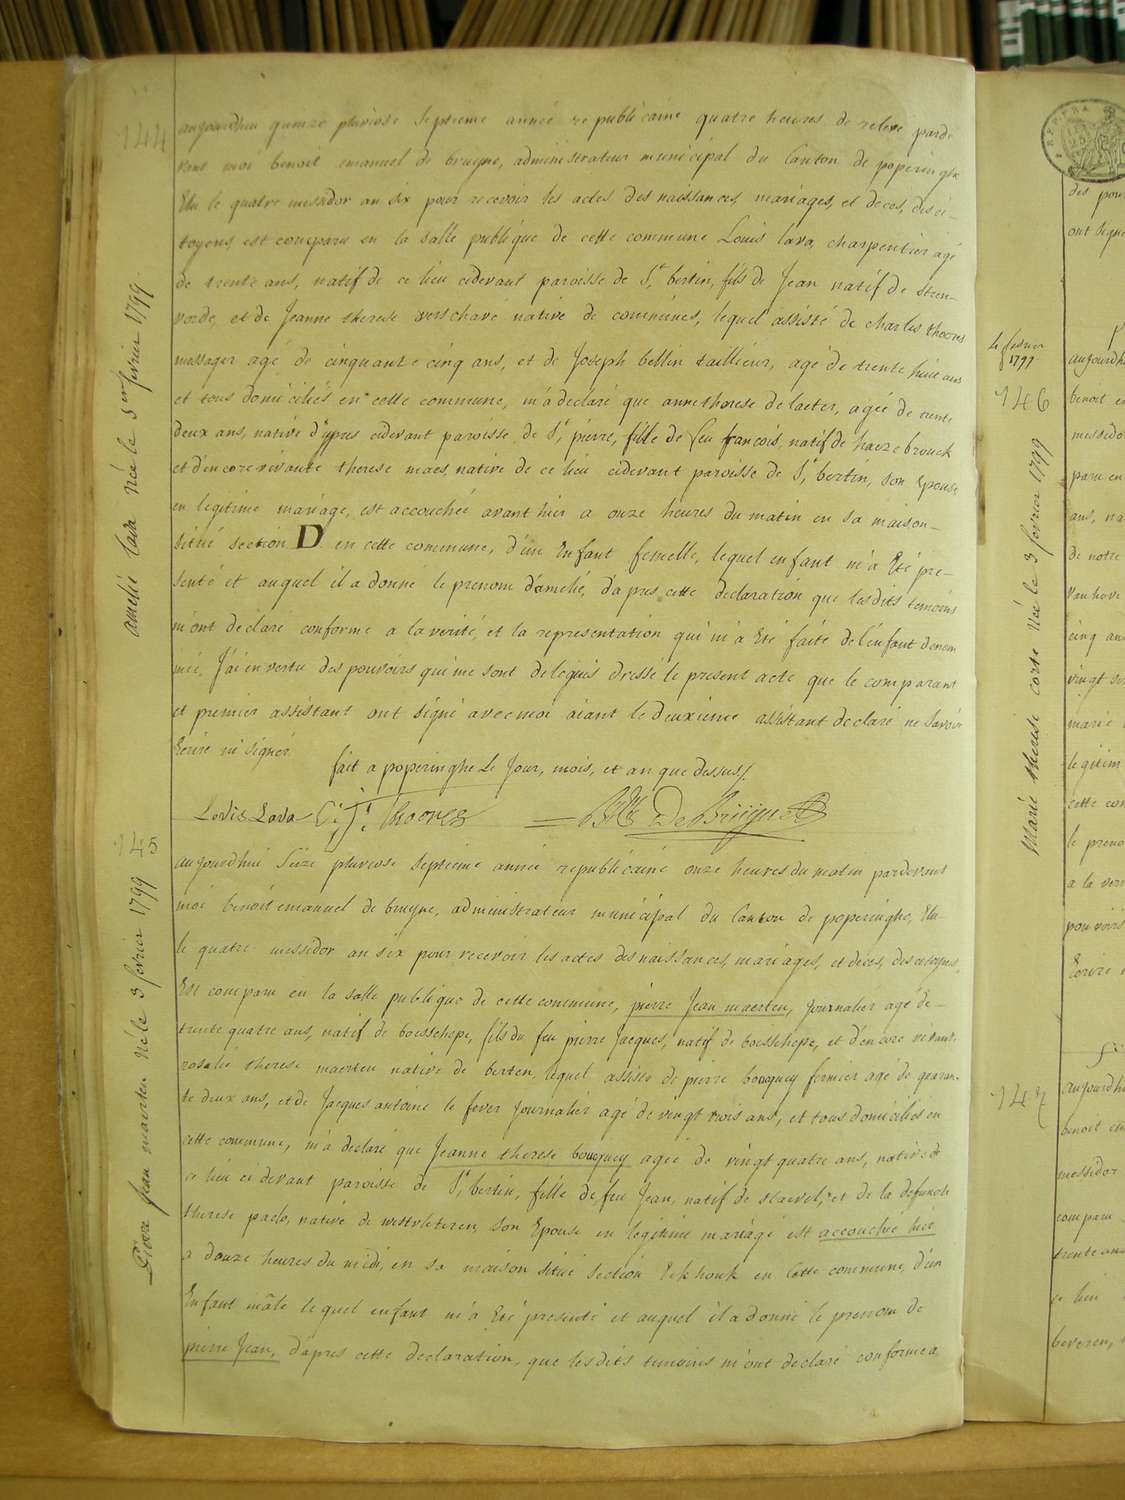 144
aujourdhui quinze pluviose Septieme année republicaine quatre heures de relevé parde
vant moi benoit emanuel de bruyne, administrateur municipal du Canton de poperinghe
Elu le quatre messidor an six pour recevoir les actes des naissances, mariages, et deces, des ci-
toyens, est comparu en la salle publique de cette commune Louis lava, charpentier agé
de trente ans, natif de ce lieu cidevant paroisse de St. bertin, fils de Jean natif de Steen-
vorde, et de Jeanne therese verschave native de commines, lequel assisté de charles thoores
messager agé de cinquante cinq ans, et de Joseph bellen tailleur, agé de trente huit ans
et tous domiciliés en cette commune, m'a declaré que anne therese de laeter, agée de trente
deux ans, native d'ypres cidevant paroisse de St. pierre, fille de feu francois, natif de haezebrouck
et d'encore vivante therese maes, native de ce lieu cidevant paroisse de St. bertin, son Epouse
en legitime mariage, est accouchée avant hier a onze heures du matin en sa maison-
situé section D en cette commune, d'un Enfant femelle, lequel enfant m'a Eté pre-
senté et auquel il a donné le prenom d'amelie, d'apres cette declaration que lesdits temoins
m'ont declaré conforme a la verité, et la representation qui m'a Eté faite de l'enfant denom
mée, J'ai en vertu des pouvoirs qui me sont delegués dressé le present acte que le comparant
et premier assistant ont signé avec moi aiant le deuxieme assistant declaré ne savoir
Ecrire ni signer
fait a poperinghe Le Jour, mois, et an que dessus/.
Lovis Lava C: J: Thoores B: E: De Bruyne
amelie lava née le 1er fevrier 1799
145
aujourdhui Seize pluviose septieme année republicaine onze heures du matin pardevant
moi benoit emanuel de bruyne, administrateur municipal du Canton de poperinghe, Elu
le quatre messidor an six pour recevoir les actes des naissances, mariages, et deces, des citoyens,
Est comparu en la salle publique de cette commune, pierre Jean maerten, Journalier agé de-
trente quatre ans, natif de boesschepe, fils du feu pierre Jacques, natif de boesschepe, et d'encore vivante
rosalie therese maerten native de berten, lequel assisté de pierre bouquey fermier agé de quaran-
te deux ans, et de Jacques antoine le fever Journalier agé de vingt trois ans, et tous domiciliés en
cette commune, m'a declaré que Jeanne therese bouquey agée de vingt quatre ans, native de
ce lieu ci devant paroisse de St. bertin, fille de feu Jean, natif de et de la defunte
therese native de westvleteren, son Epouse en legitime mariage est accouchée hier
a douze heures du midi, en sa maison situé section en Cette commune, d'un
Enfant mâle lequel enfant m'a Eté presenté et auquel il a donné le prenom de
pierre Jean, d'apres cette declaration, que lesdits temoins m'ont declaré conforme a
Pierre Jean maerten Né le 3 fevrier 1799
des pou
ont signé
4 fevrier
1799
146
aujourdh
benoit e
messido
paru en
ans, na
de notre
van hove
cinq an
vingt si
marié
legitim
cette co
le preno
a la ver
pouvoirs
Ecrire
Marie therese coste Née le 3 fevrier 1799
147
aujourdh
benoit e
messidor
comparu
trente ans
ce lieu
beveren,